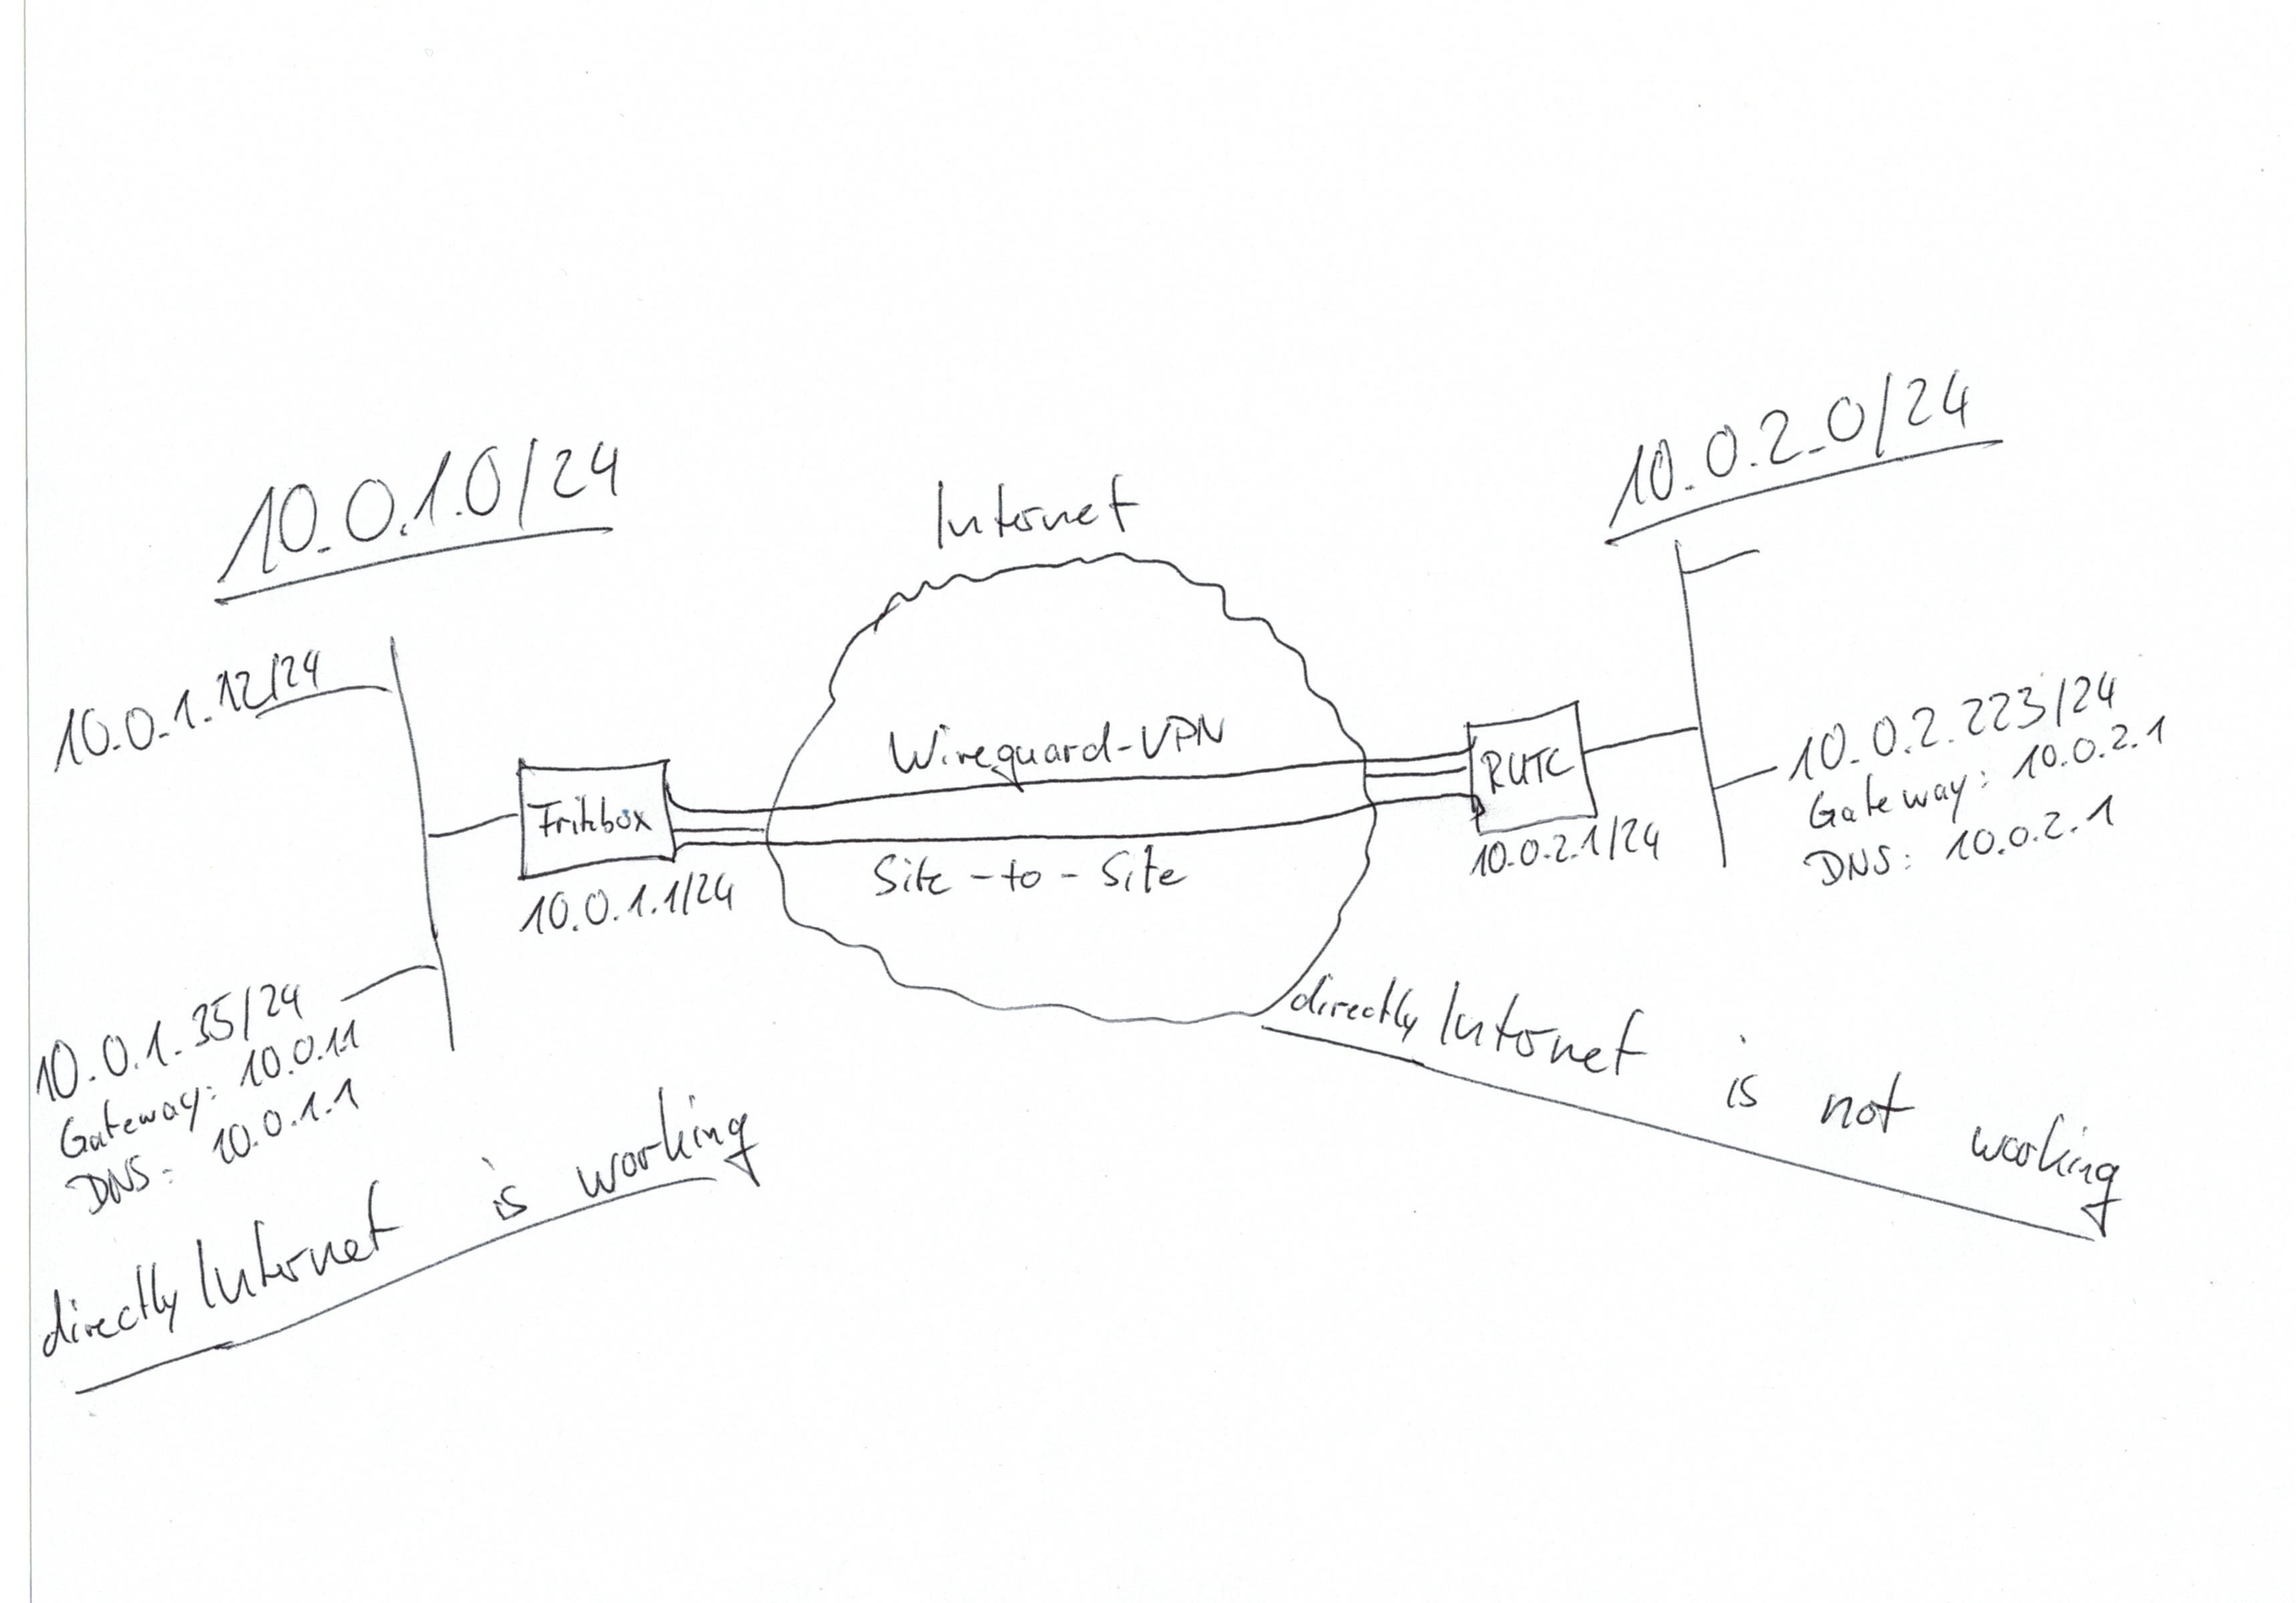 10.0.1.0/24
10.0.1.12/24
Fritzbox
10.0.1.1/24
10.0.1.35/24
Gateway: 10.0.1.1
DNS: 10.0.1.1
directly Internet is working
Internet
Wireguard-VPN
Site-to-Site
10.0.2.0/24
RUTC
10.0.2.1/24
10.0.2.223/24
Gateway: 10.0.2.1
DNS: 10.0.2.1
directly Internet is not working